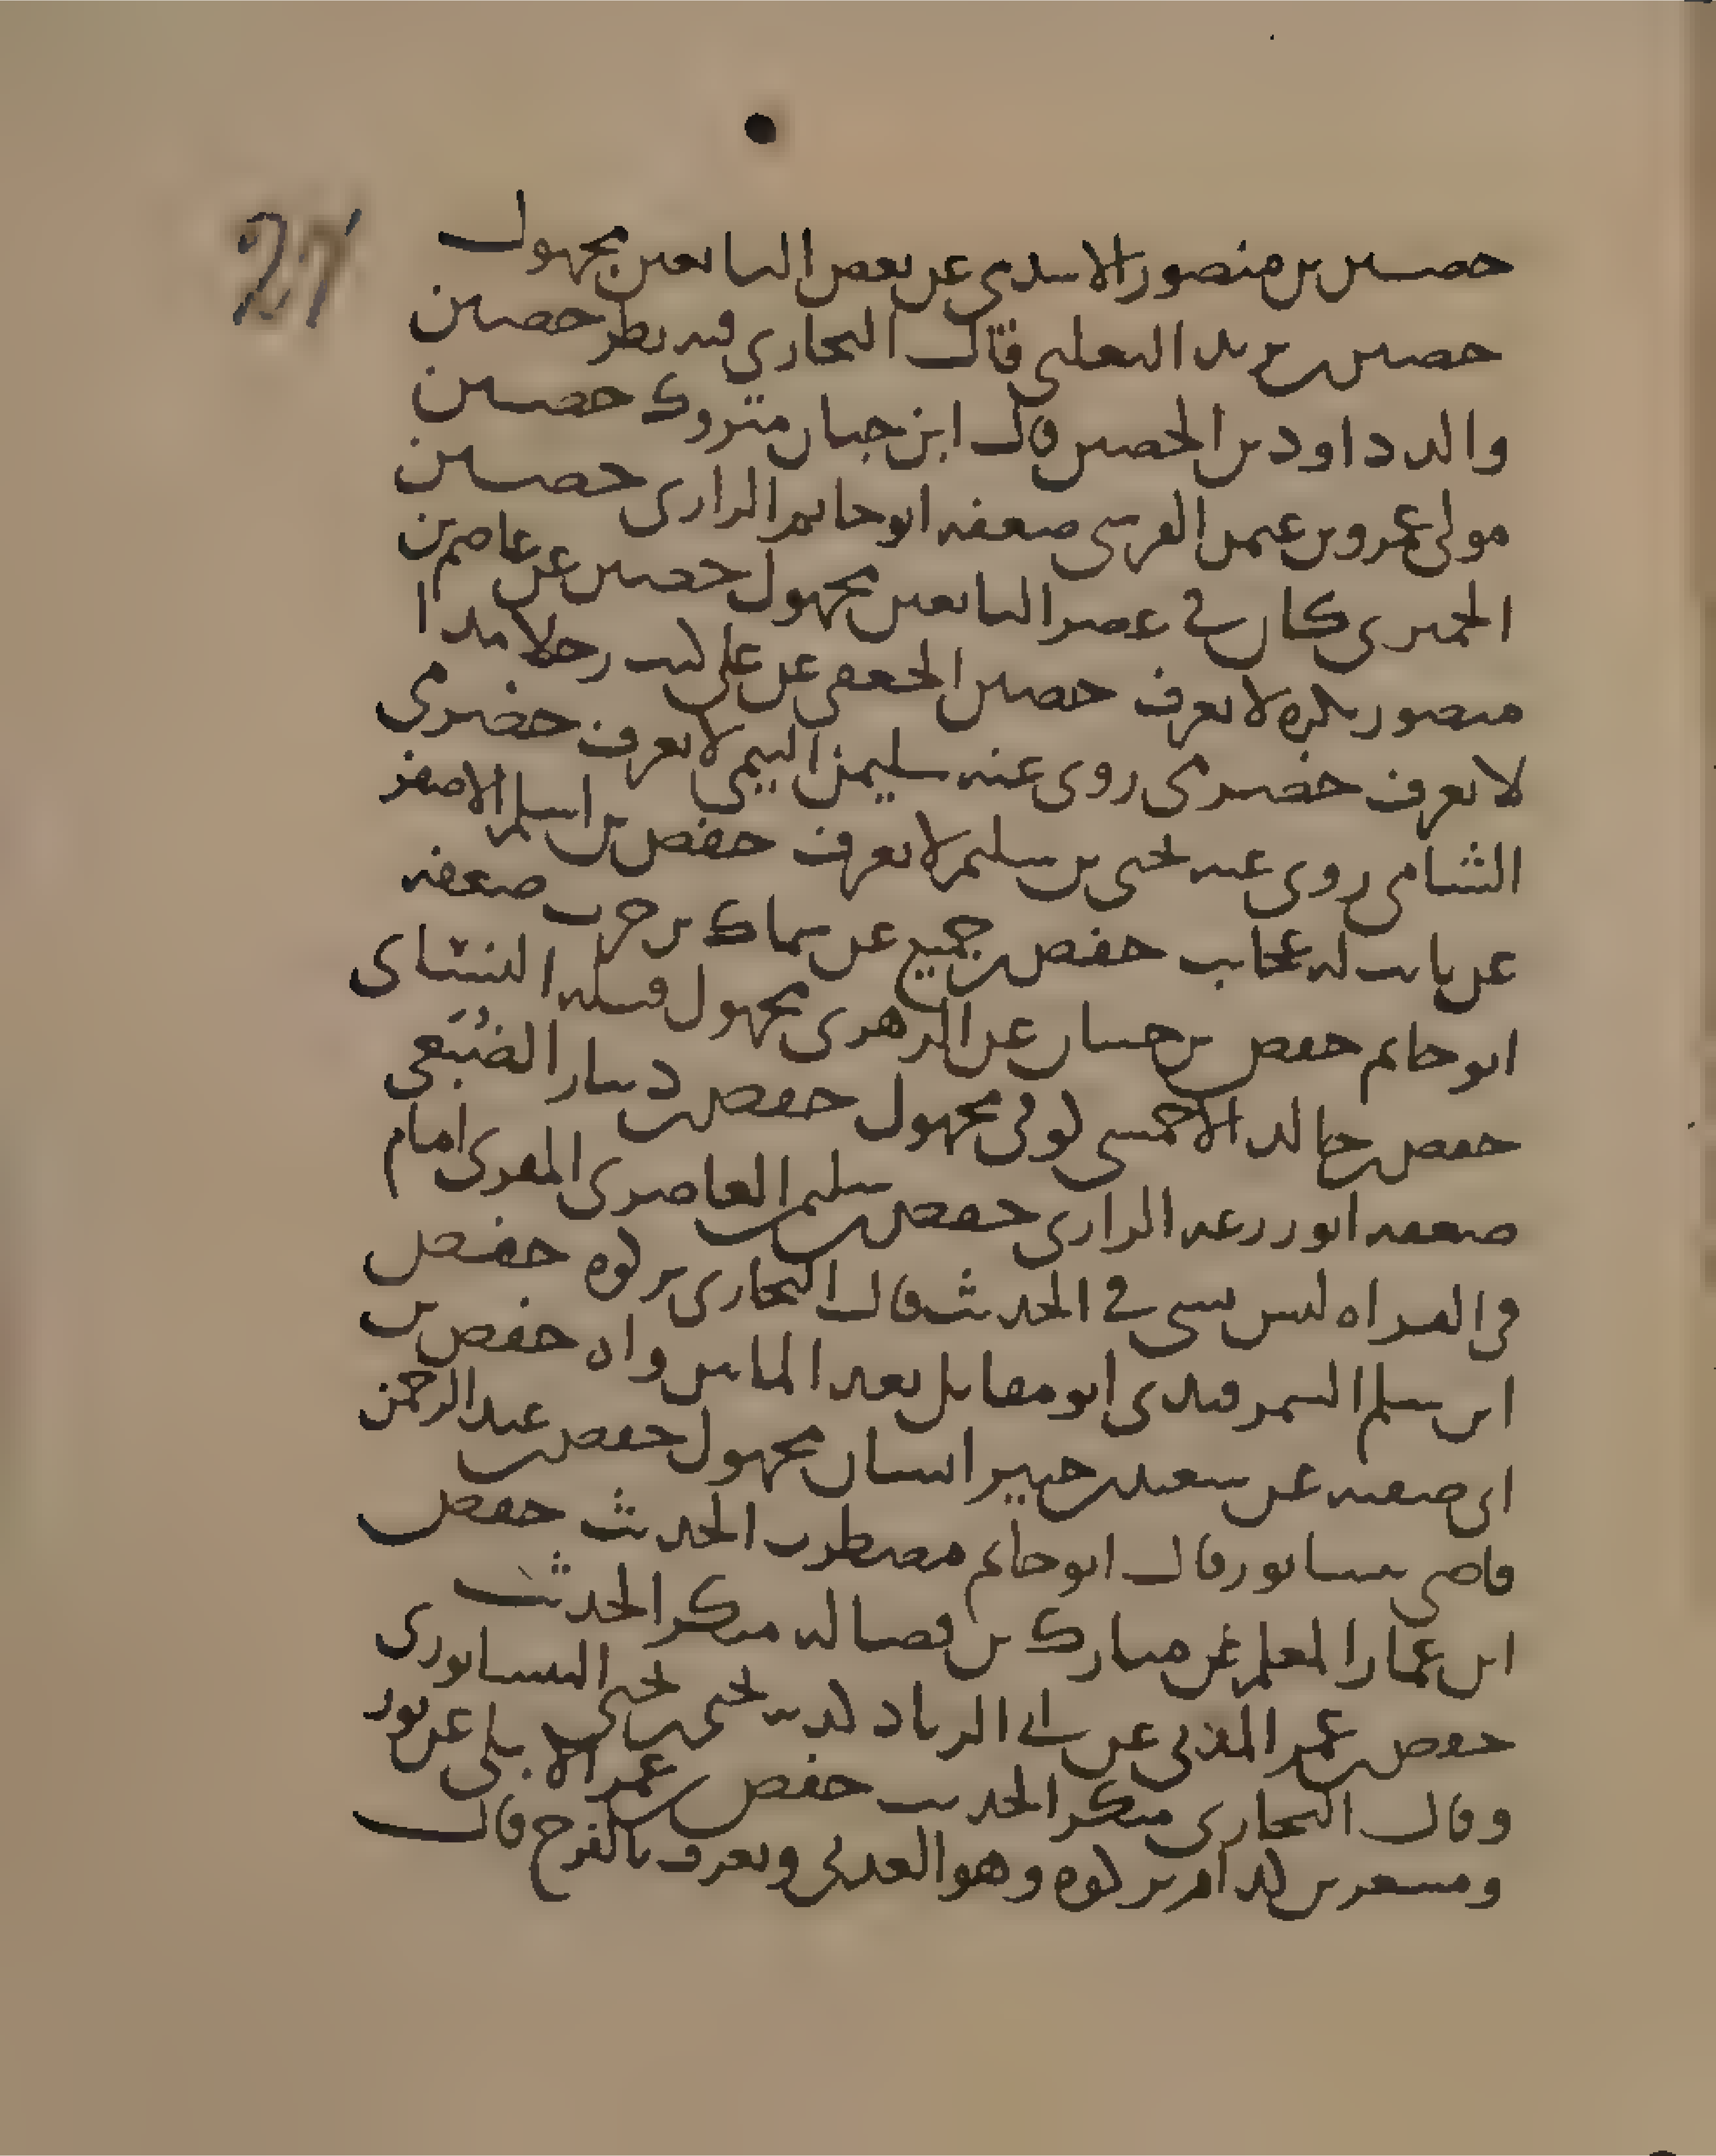 27
حصين بن منصور الاسدي عن بعض التابعين مجهول
حصين بن يزيد الثعلبي قال البخاري فيه نظر حصين
والد داود بن الحصين قال ابن حبان متروك حصين
مولى عمرو بن عثمن القرشي ضعفه ابو حاتم الرازي حصين
الحميري كان في عصر التابعين مجهول حصين عن عاصم بن
منصور نكرة لا يعرف حصين الجعفي عن علي ليت رجلا مدا
لا يعرف حضرمي روى عنه سليمن التيمي لا يعرف حضرمي
الشامي روى عنه يحيى بن سليم لا يعرف حفص بن اسلم الاصفر
عن ثابت له عجايب حفص بن جميع عن سماك بن حرب ضعفه
ابو حاتم حفص بن حسان عن الزهري مجهول قبله النسائ
حفص بن خالد الاحمسي كوفي مجهول حفص بن دينار الضبعي
ضعفه ابو زرعة الرازي حفص بن سليمن العاضري المقرى امام
في القراه ليس بشي في الحديث قال البخاري تركوه حفص
ابن سلم السمرقندي ابو مقاتل بعد المايتين واه حفص بن
ابي صفية عن سعيد بن جبير انسان مجهول حفص بن عبد الرحمن
قاضي نيسابور قال ابو حاتم مضطرب الحديث حفص
ابن عمار المعلم عن مبارك بن فضاله منكر الحديث
حفص بن عمر المدني عن ابي الزناد كذبه يحيى بن يحيى النيسابوري
وقال البخاري منكر الحديث حفص بن عمر الابلي عن ثور
ومسعر بن كدام تركوه وهو العدني ويعرف بالفرخ قال